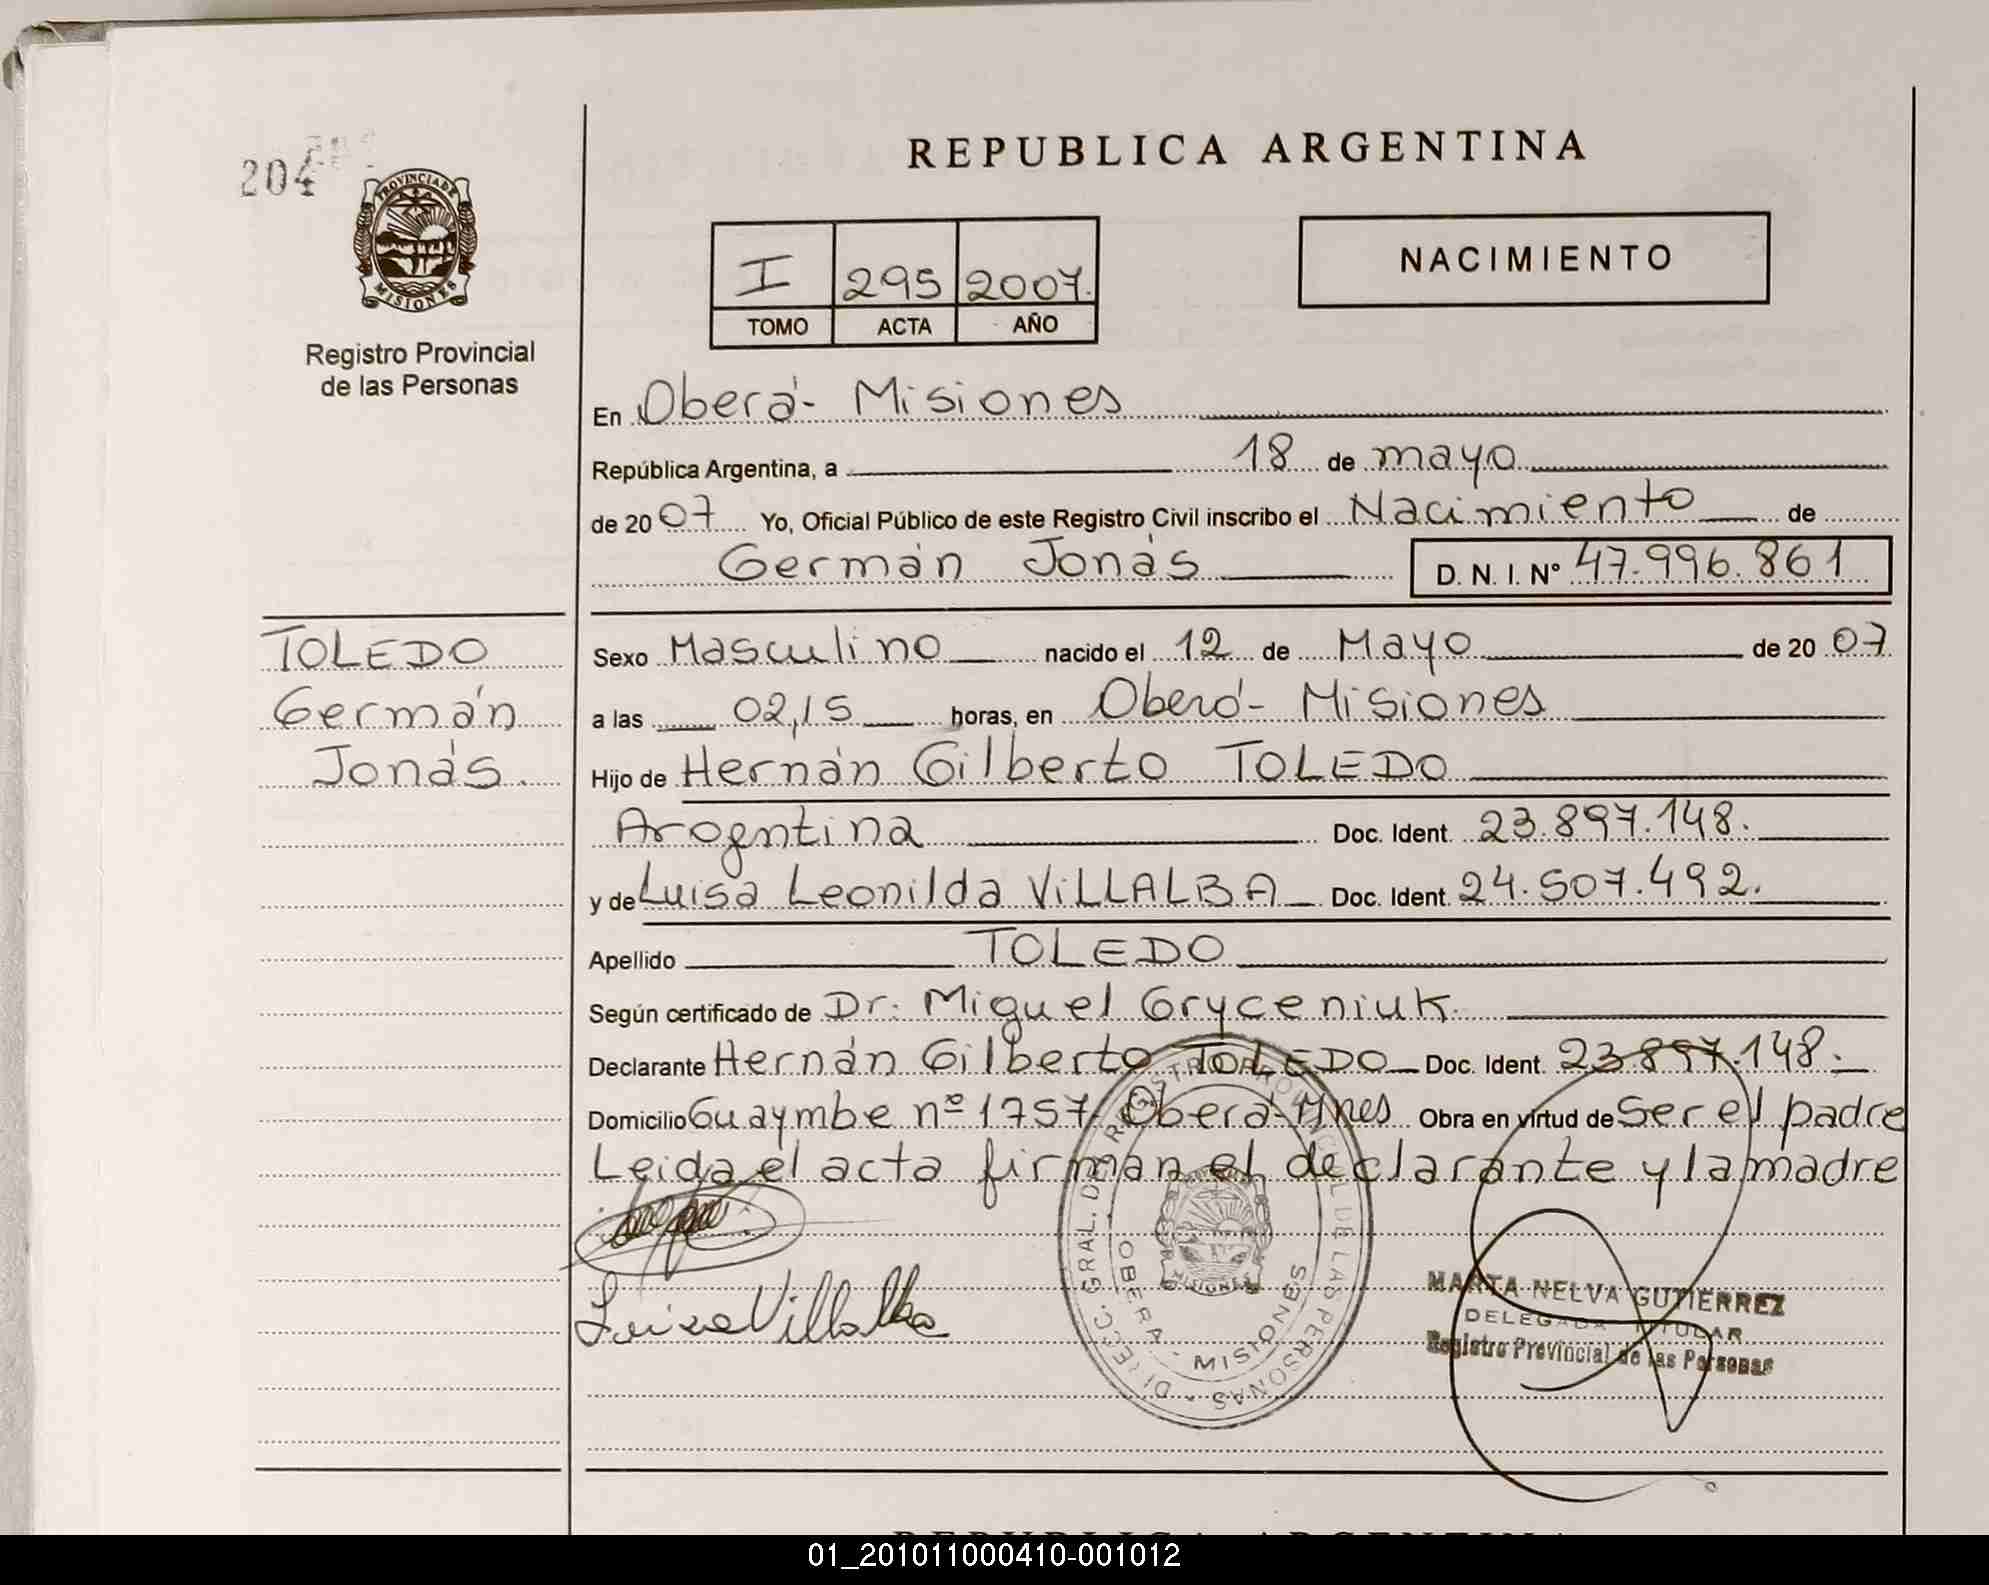 204
PROVINCIA DE
MISIONES
Registro Provincial
de las Personas
REPUBLICA ARGENTINA
I 295 2007.
TOMO ACTA AÑO
NACIMIENTO
En Oberá - Misiones
República Argentina, a 18 de mayo
de 20 07 Yo, Oficial Público de este Registro Civil inscribo el Nacimiento de
Germán Jonás D. N. I. Nº 47.996.861
TOLEDO
Germán
Jonás.
Sexo Masculino nacido el 12 de Mayo de 20 07
a las 02,15 horas, en Oberá - Misiones
Hijo de Hernán Gilberto TOLEDO
Argentina Doc. Ident. 23.897.148.
y de Luisa Leonilda ViLLALBA Doc. Ident. 24.507.492.
Apellido TOLEDO
Según certificado de Dr. Miguel Gryceniuk.
Declarante Hernán Gilberto TOLEDO Doc. Ident. 23.897.148.
Domicilio Guaymbe nº 1757 Oberá - Mnes Obra en virtud de Ser el padre
Leida el acta firman el declarante y la madre
Luisa Villalba
DIREC. GRAL. DEL REGISTRO PROVINCIAL DE LAS PERSONAS
OBERA - MISIONES
MISIONES
MARTA NELVA GUTIERREZ
DELEGADA TITULAR
Registro Provincial de las Personas
REPUBLICA ARGENTINA
01_201011000410-001012